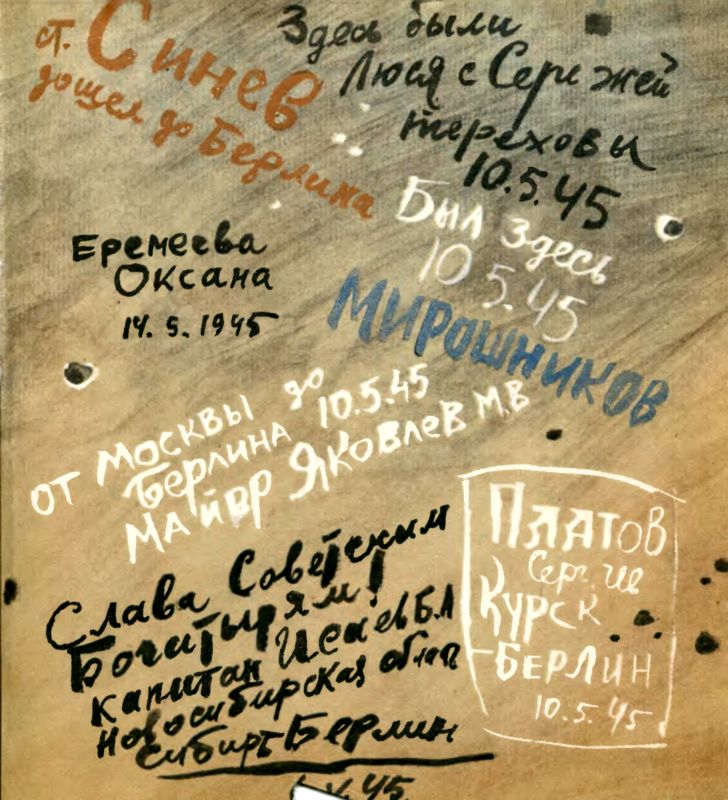 ст. Синев
дошел до Берлина
Здесь были
Люся с Сережей
Тереховы
10.5.45
Был здесь
10 5.45
Мирошников
Еремеева
Оксана
14. 5. 1945
от Москвы до
Берлина 10.5.45
Майор Яковлев М.В
Слава Советским
Богатырям!
капитан Исаев Б.А
Новосибирская обл
Сибирь Берлин
45.
Платов
Курск
-Берлин
10.5.45